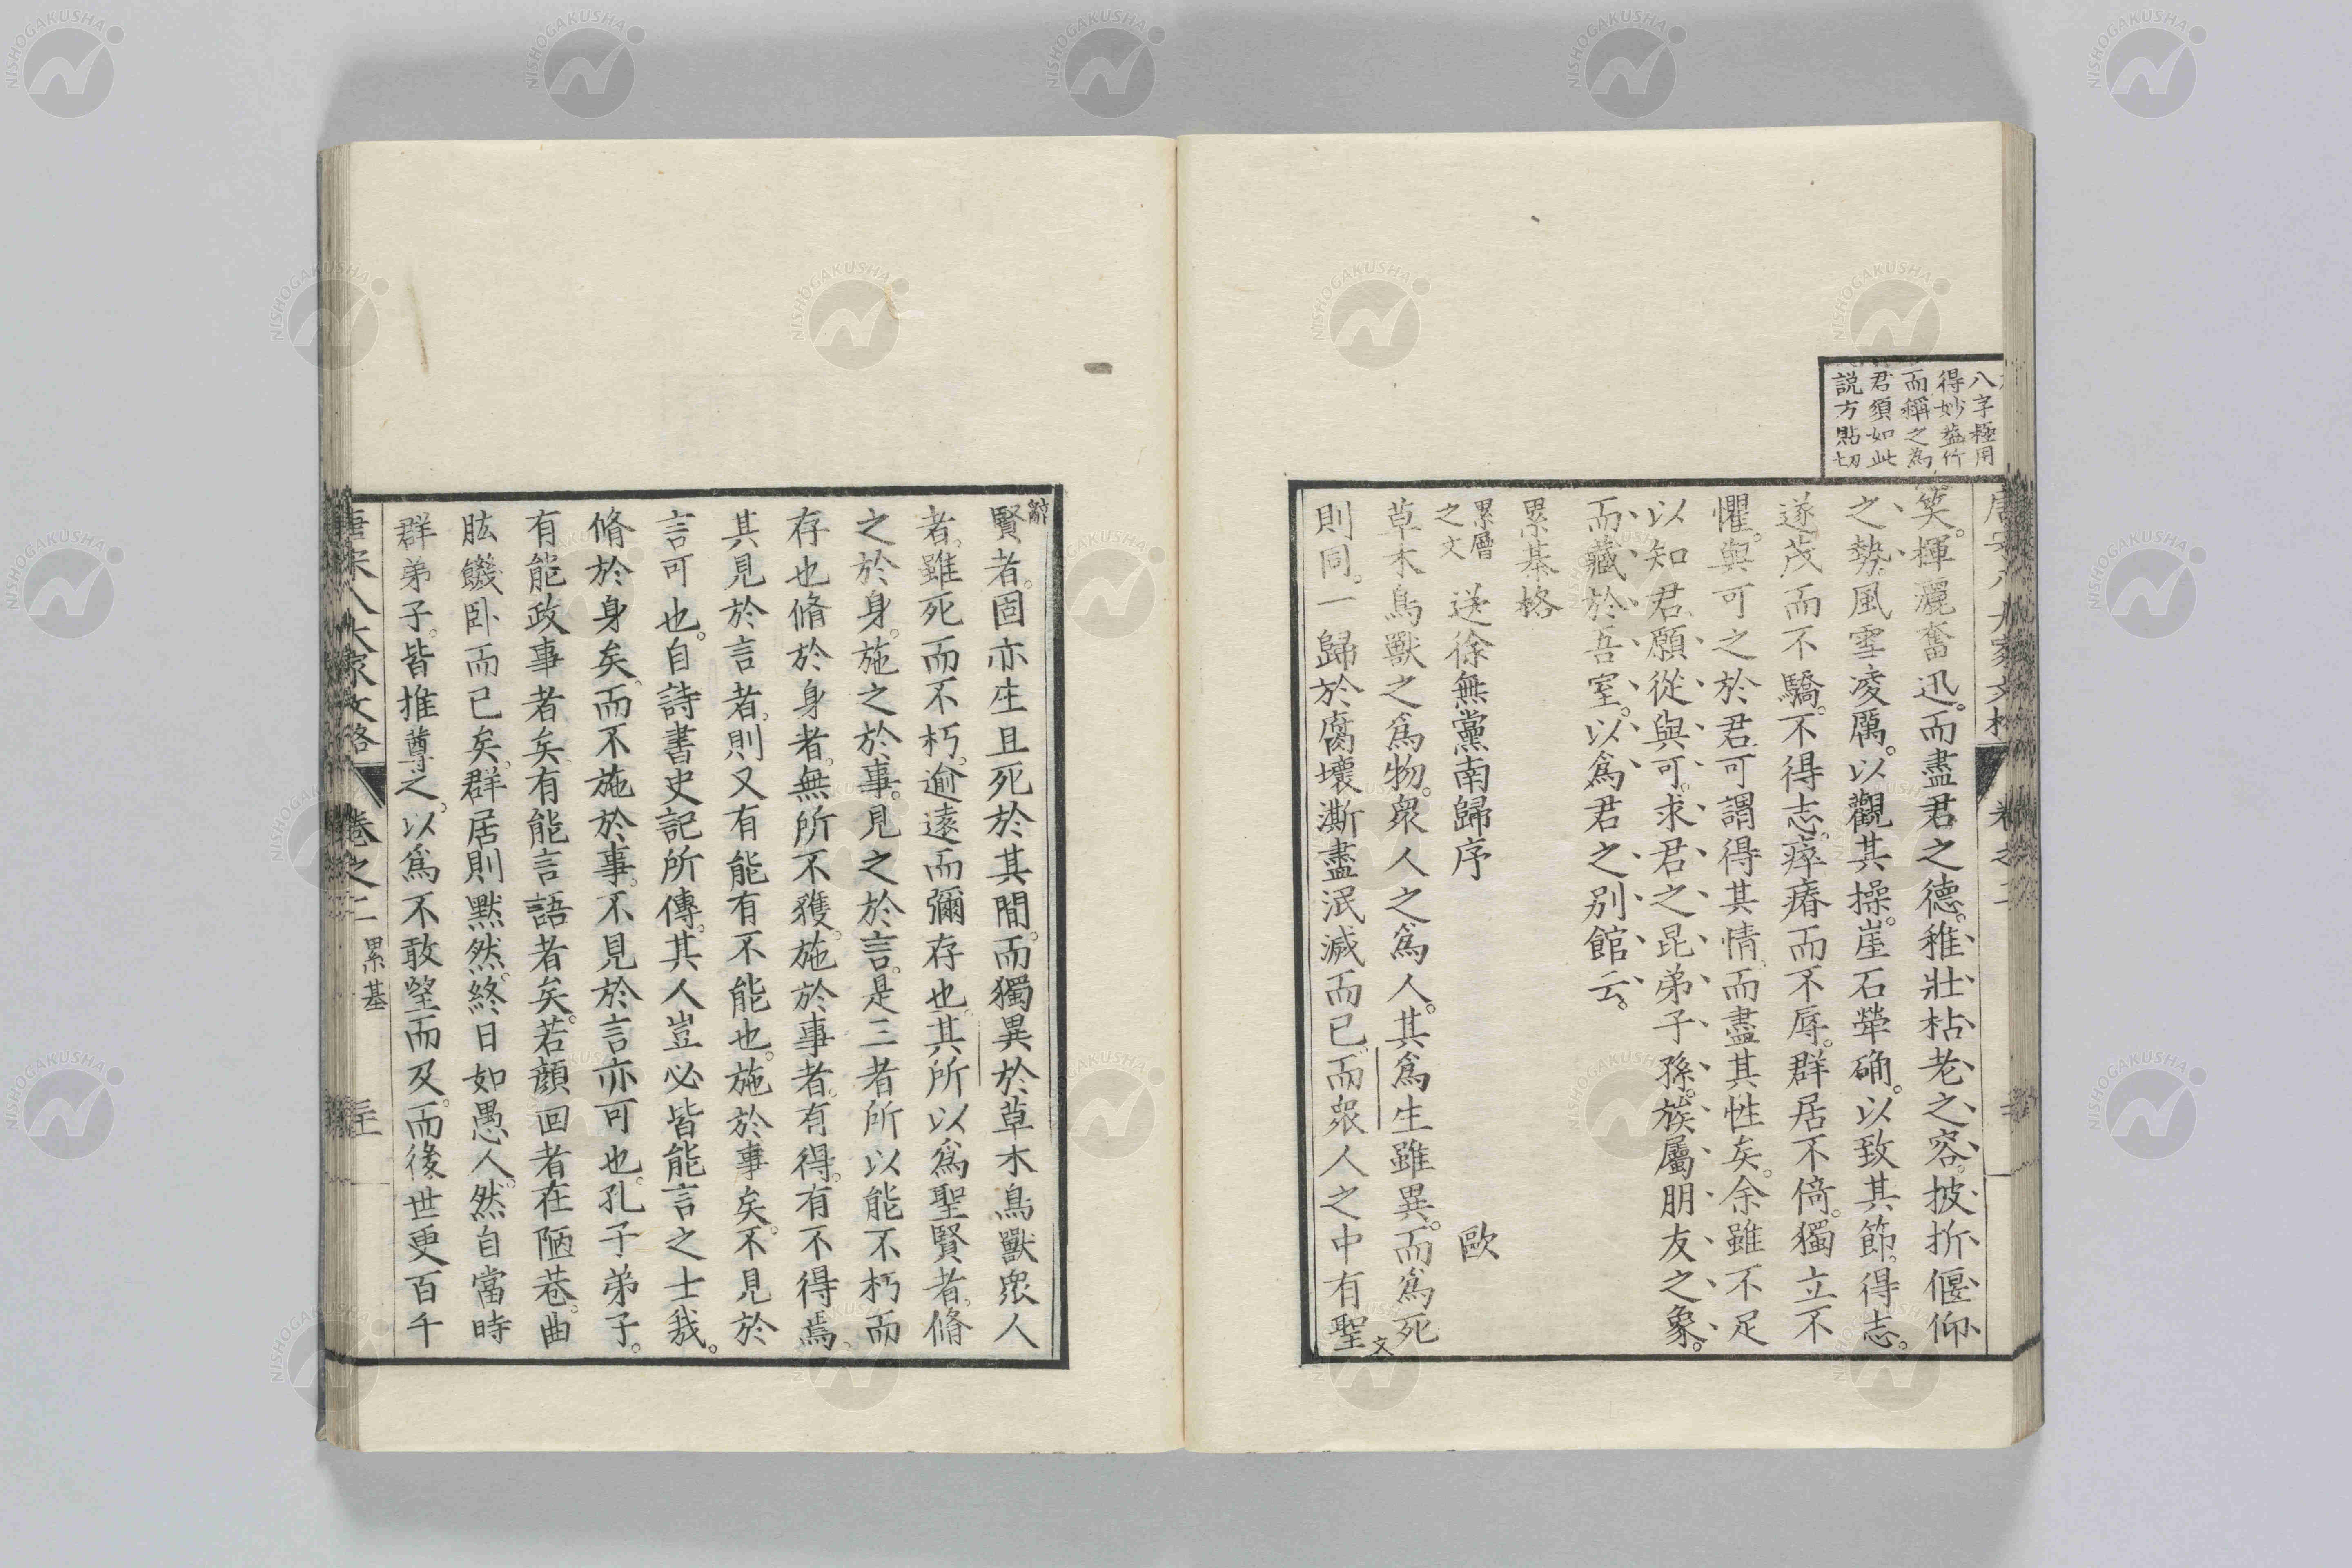 八字極用
得妙蓋竹
而稱之為
君須如此
說方點切
笑。揮灑奮迅。而盡君之德。稚壯枯老之容。披折偃仰
之勢。風雪凌厲。以觀其操。崖石犖确。以致其節。得志。
遂茂而不驕。不得志。瘁瘠而不辱。群居不倚。獨立不
懼。與可之於君。可謂得其情。而盡其性矣。余雖不足
以知君。願從與可。求君之昆弟子孫。族屬朋友之象。
而藏於吾室。以爲君之别館云。
累棊格
累層之文 送徐無黨南歸序 歐
草木鳥獸之爲物。衆人之爲人。其爲生雖異。而爲死
則同。一歸於腐壞澌盡泯滅而已。而衆人之中有聖
文
辭
賢者。固亦生且死於其間。而獨異於草木鳥獸衆人
者。雖死而不朽。逾遠而彌存也。其所以爲聖賢者。脩
之於身。施之於事。見之於言。是三者所以能不朽而
存也。脩於身者。無所不獲。施於事者。有得。有不得焉。
其見於言者。則又有能有不能也。施於事矣。不見於
言可也。自詩書史記所傳。其人豈必皆能言之士哉。
脩於身矣。而不施於事。不見於言。亦可也。孔子弟子。
有能政事者矣。有能言語者矣。若顔回者。在陋巷。曲
肱饑卧而已矣。群居則默然。終日如愚人。然自當時
群弟子。皆推尊之。以爲不敢望而及。而後世更百千
唐宋八大家文格 卷之二 累棊